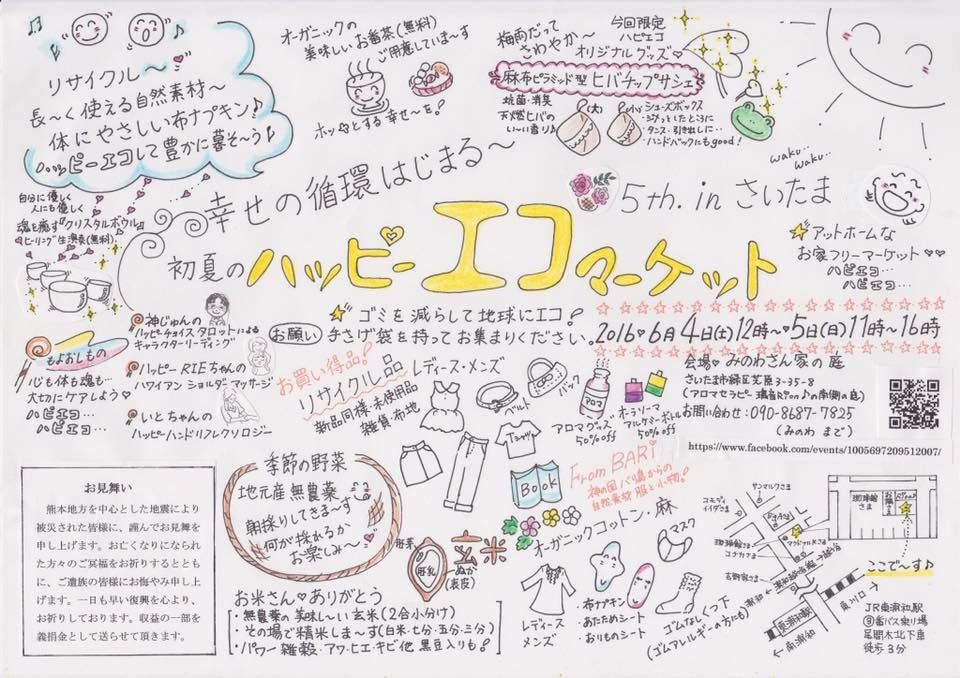 リサイクル〜
長〜く使える自然素材〜
体にやさしい布ナプキン♪
ハッピーエコして豊かに暮そ〜う♪
オーガニックの
美味しいお番茶(無料)
ご用意していま〜す
ホッとする幸せ〜を!
梅雨だって
さわやか〜
今回限定
ハピエコ
オリジナルグッズ♡
麻布ピラミッド型ヒバチップサシェ
抗菌・消臭
天然ヒバの
いい香り♪
(大)
(小)
・シューズボックス
・タンス・引き出しに…
・ハンドバックにもgood!
waku..
waku..
自分に優しく
人にも優しく
魂を癒す『クリスタルボウル』
ヒーリング生演奏(無料)
幸せの循環はじまる〜
5th. in さいたま
初夏の ハッピーエコマーケット
アットホームな
お家フリーマーケット♡♡
ハピエコ…
ハピエコ…
ゴミを減らして地球にエコ!
お願い 手さげ袋を持ってお集まりください。
2016♥6月4日(土)12時〜5日(日)11時〜16時
会場♡みのわさん家の庭
さいたま市緑区芝原3-35-8
お問い合わせ:090-8687-7825
(みのわ まで)
https://www.facebook.com/events/1005697209512007/
もよおしもの
心も体も魂も…
大切にケアしよう♡
ハピエコ…
ハピエコ…
神じゅんの
ハッピーチョイスタロットによる
キャラクターリーディング
ハッピーRIEちゃんの
ハワイアン ショルダーマッサージ
いとちゃんの
ハッピーハンドリフレクソロジー
お買い得品!
リサイクル品
新品同様・未使用品
雑貨・布地
レディース・メンズ
ベルト
バック
Tシャツ
BOOK
アロマグッズ
50%off
オーラソーマ
アルケミーボトル
50%off
From BARi
神の国バリ島からの
自然素材 服と小物!
お見舞い
熊本地方を中心とした地震により
被災された皆様に、謹んでお見舞を
申し上げます。お亡くなりになられ
た方々のご冥福をお祈りするととも
に、ご遺族の皆様にお悔やみ申し上
げます。一日も早い復興を心より、
お祈りしております。収益の一部を
義捐金として送らせて頂きます。
季節の野菜
地元産無農薬
朝採りしてきま〜す
何が採れるか
お楽しみ〜♡
玄米
胚芽
胚乳
ぬか
(表皮)
お米さん♡ありがとう
・無農薬の美味し〜い玄米(2合小分け)
・その場で精米しま〜す(白米・七分・五分・三分)
・パワー雑穀・アワ・ヒエ・キビ他 黒豆入りも!
オーガニックコットン・麻
レディース
メンズ
・布ナプキン
・あたためシート
・おりものシート
マスク
ゴムなし くつ下
(ゴムアレルギーの方にも)
コモディ
イイダさま
サンマルクさま
マクドナルドさま
珈琲館さま
コナカさま
吉野家さま
珈琲館
さま
東浦和駅
←浦和
←南浦和
東川口→
ここで〜す♪
JR東浦和駅
③番バス乗り場
尾間木北下車
徒歩3分